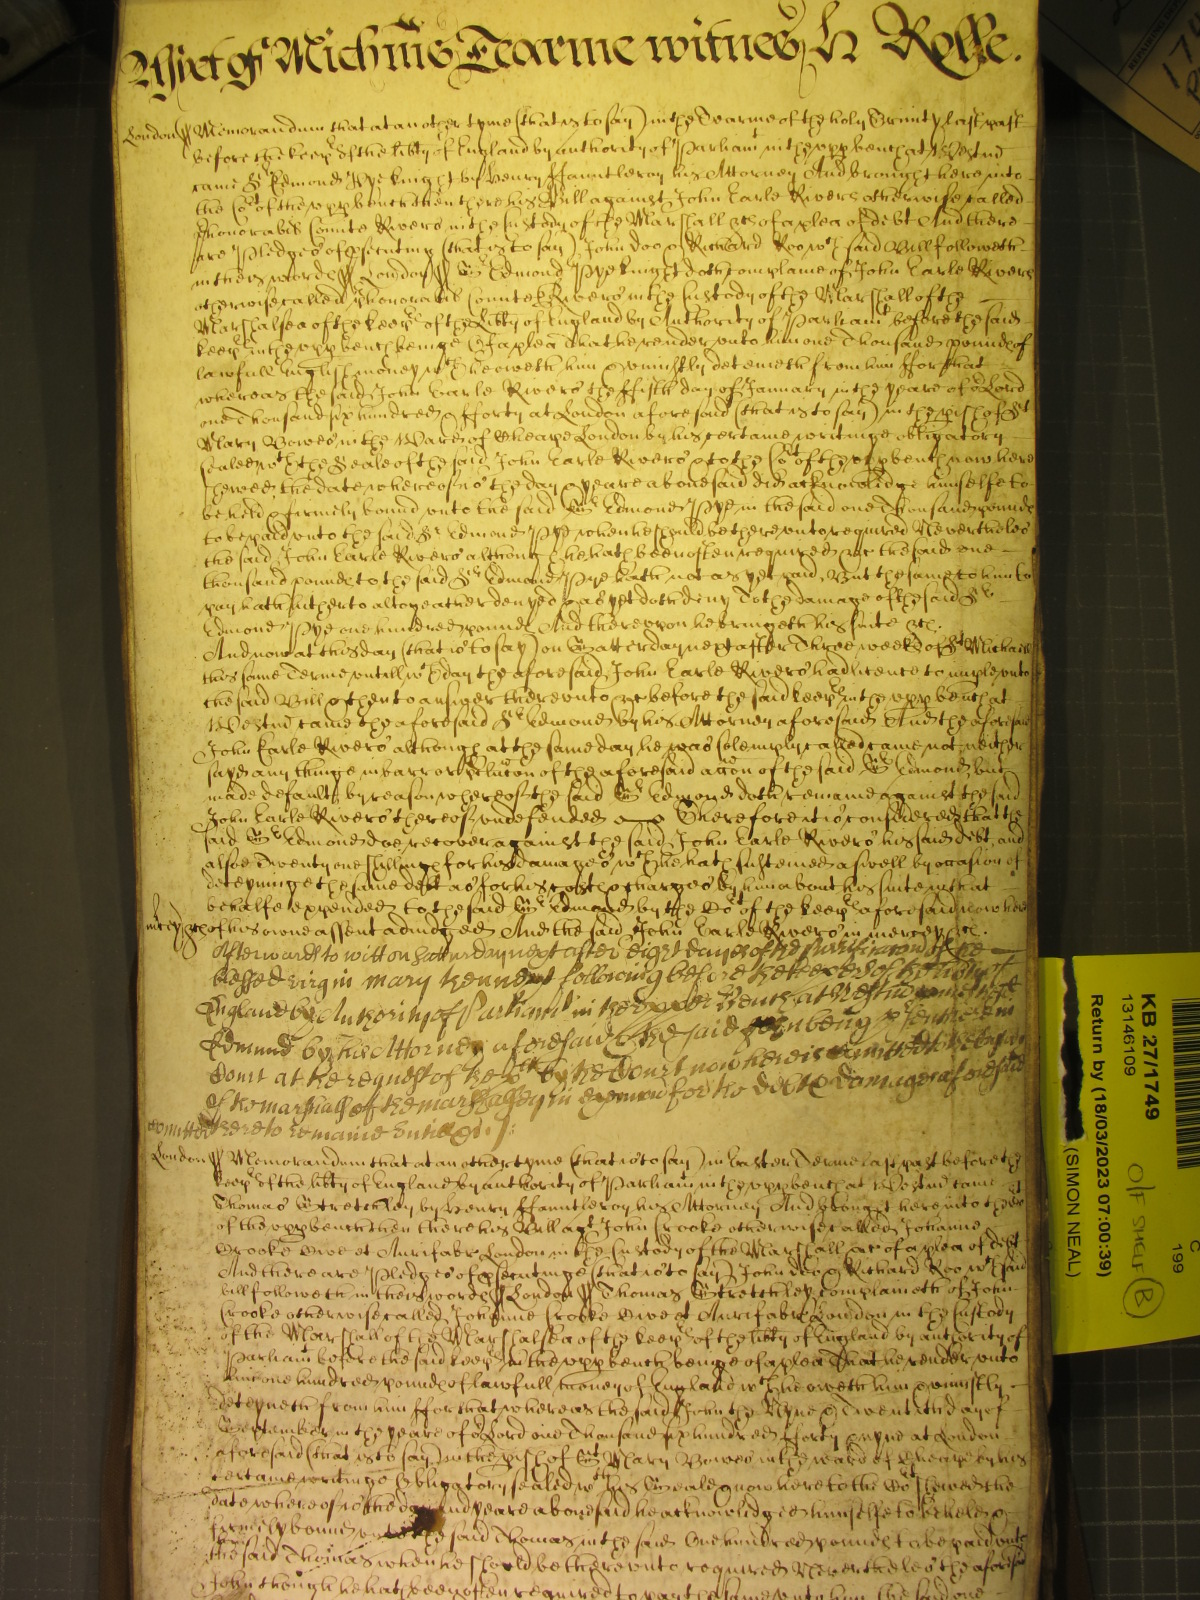 Yet of Mich'mis Tearme witnes H Rolle.
London ss Memorandum that at an other tyme (that is to say) in the Tearme of the holy Trinity last past
before the keep's of the lib'ty of England by authority of Parliam't in the upp bench at Westm'
came S'r Edmond Pye knight by Henry ffauntleroy his Attorney And brought here into
the Co't of the upp bench then there his Bill against John Earle Rivers otherwise called
honorable Counte Rivers in the Custody of the Marshall &c of a plea of debt And there
are Pledges of p'secuting (that is to say) John Doo & Richard Roo w'ch said Bill followeth
in theis words ss London ss S'r Edmond Pye knight doth complaine of John Earle Rivers
otherwise called honorable Counte Rivers in the Custody of the Marshall of the
Marshalsea of the keep's of the Lib'ty of England by Authority of Parliam't before the said
keep's in the upp bench being of a plea That he render unto him one Thousand pounds of
lawfull English money w'ch he oweth him & uniustly deteineth from him ffor that
whereas the said John Earle Rivers the ffifth day of January in the yeare of o'r Lord
one Thousand six hundred & fforty at London aforesaid (that is to say) in the p'ish of S't
Mary Bowe in the Ward of Cheape London by his certaine writinge obligatory
sealed w'th the Seale of the said John Earle Rivers & to the Co't of the upp bench now here
shewed the date whereof is the day & yeare abovesaid did acknowledge himselfe to
be held & firmely bound unto the said S'r Edmond Pye in the said one Thousand pounds
to be paid unto the said S'r Edmond Pye when he should be thereunto required Neverthelesse
the said John Earle Rivers although he hath been often required &c the said one
thousand pounds to the said S'r Edmond Pye hath not as yet paid But the same to him to
pay hath hitherto altogeather denyed & as yet doth deny To the damage of the said S'r
Edmond Pye one hundred pounds And thereupon he bringeth his suite &c.
And now at this day (that is to say) on Satterday next after Three weeks of S't Michaell
this same Terme untill w'ch day the aforesaid John Earle Rivers had licence to imparle unto
the said Bill & then to answer thereunto &c before the said keep's in the upp bench at
Westm' came the aforesaid S'r Edmond by his Attorney aforesaid And the aforesaid
John Earle Rivers although at the same day he was solempnly called came not neither
saye any thinge in barr or p'clusion of the aforesaid accon of the said S'r Edmond but
made default by reason whereof the said S'r Edmond doth remaine against the said
John Earle Rivers thereof undefended Therefore it is considered that the
said S'r Edmond doe recover against the said John Earle Rivers his said debt and
alsoe Twenty one shillings for his damages w'ch he hath susteined aswell by occasion of
deteyninge the same debt as for his costs & charges by him about his suite in that
behalfe expended to the said S'r Edmond by the Co't of the keep's aforesaid now here
m'cy &c of his owne assent adiudged And the said John Earle Rivers in mercy &c.
Afterwards to witt on Saturday next after eight dayes of the Purification of the
blessed virgin mary then next following before the keepers of the liberty of
England by Authority of Parliam't in the upper Bench at Westm'
Edmund by his Attorney aforesaid & the said John being p'sent
Court at the request of the by the Court now here is comitted to the
of the marshall of the marshalsey in execucon for the debt & damages aforesaid
comitted there to remaine untill &c.
London ss Memorandum that at an other tyme (that is to say) in Easter Terme last past before the
keep's of the lib'ty of England by authority of Parliam't in the upp bench at Westm' came
Thomas Stretchley by Henry ffauntleroy his Attorney And brought here into the Co't
of the upp bench then there his Bill ag't John Crooke otherwise called Johanne
Crooke Cive et Aurifabr London in the Custody of the Marshall &c of a plea of debt
And there are Pledges of p'secutinge (that is to say) John Doo & Richard Roo w'ch said
bill followeth in theis words ss London ss Thomas Stretchley complaineth of John
Crooke otherwise called Johanne Crooke Cive et Aurifabr London in the Custody
of the Marshall of the Marshalsea of the keep's of the lib'ty of England by authority of
Parliam't before the said keep's in the upp bench beinge of a plea That he render unto
him one hundred pounds of lawfull money of England w'ch he oweth him & uniustly
deteyneth from him ffor that whereas the said John the Nyne & Twentith day of
September in the yeare of o'r Lord one Thousand six hundred fforty & nyne at London
aforesaid (that is to say) in the p'ish of S't Mary Bowe in the ward of Cheape by his
certaine writinge Obligatory sealed w'th his Seale & now here to the Co't shewed the
date whereof is the day and yeare abovesaid he acknowledged himselfe to be held &
firmely bound unto the said Thomas in the said One hundred pounds to be paid unto
the said Thomas when he should be thereunto required Neverthelesse the aforesaid
John though he hath been often required to pay the same unto him the said one
KB 27/1749
13146109
Return by (18/03/2023 07:00:39)
(SIMON NEAL)
C
199
O/F SHELF B